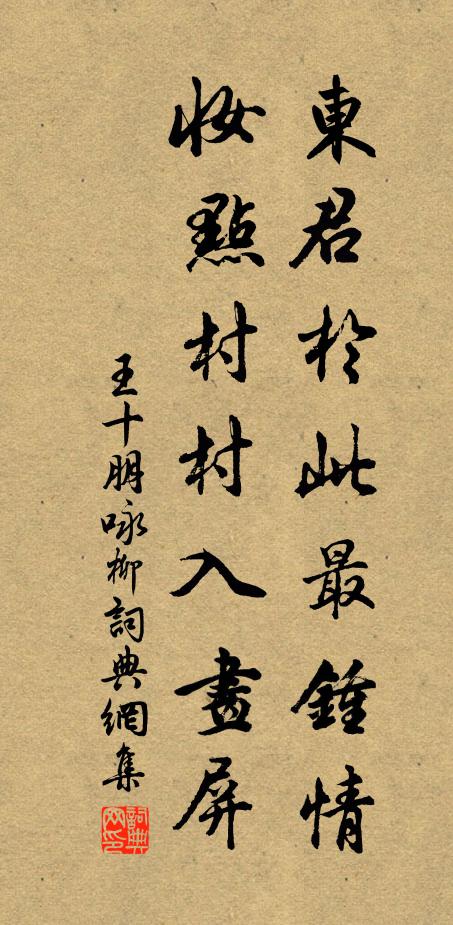 東君於此最鍾情
妝點村村入畫屏
王十朋咏柳詞典網集
詞典網印